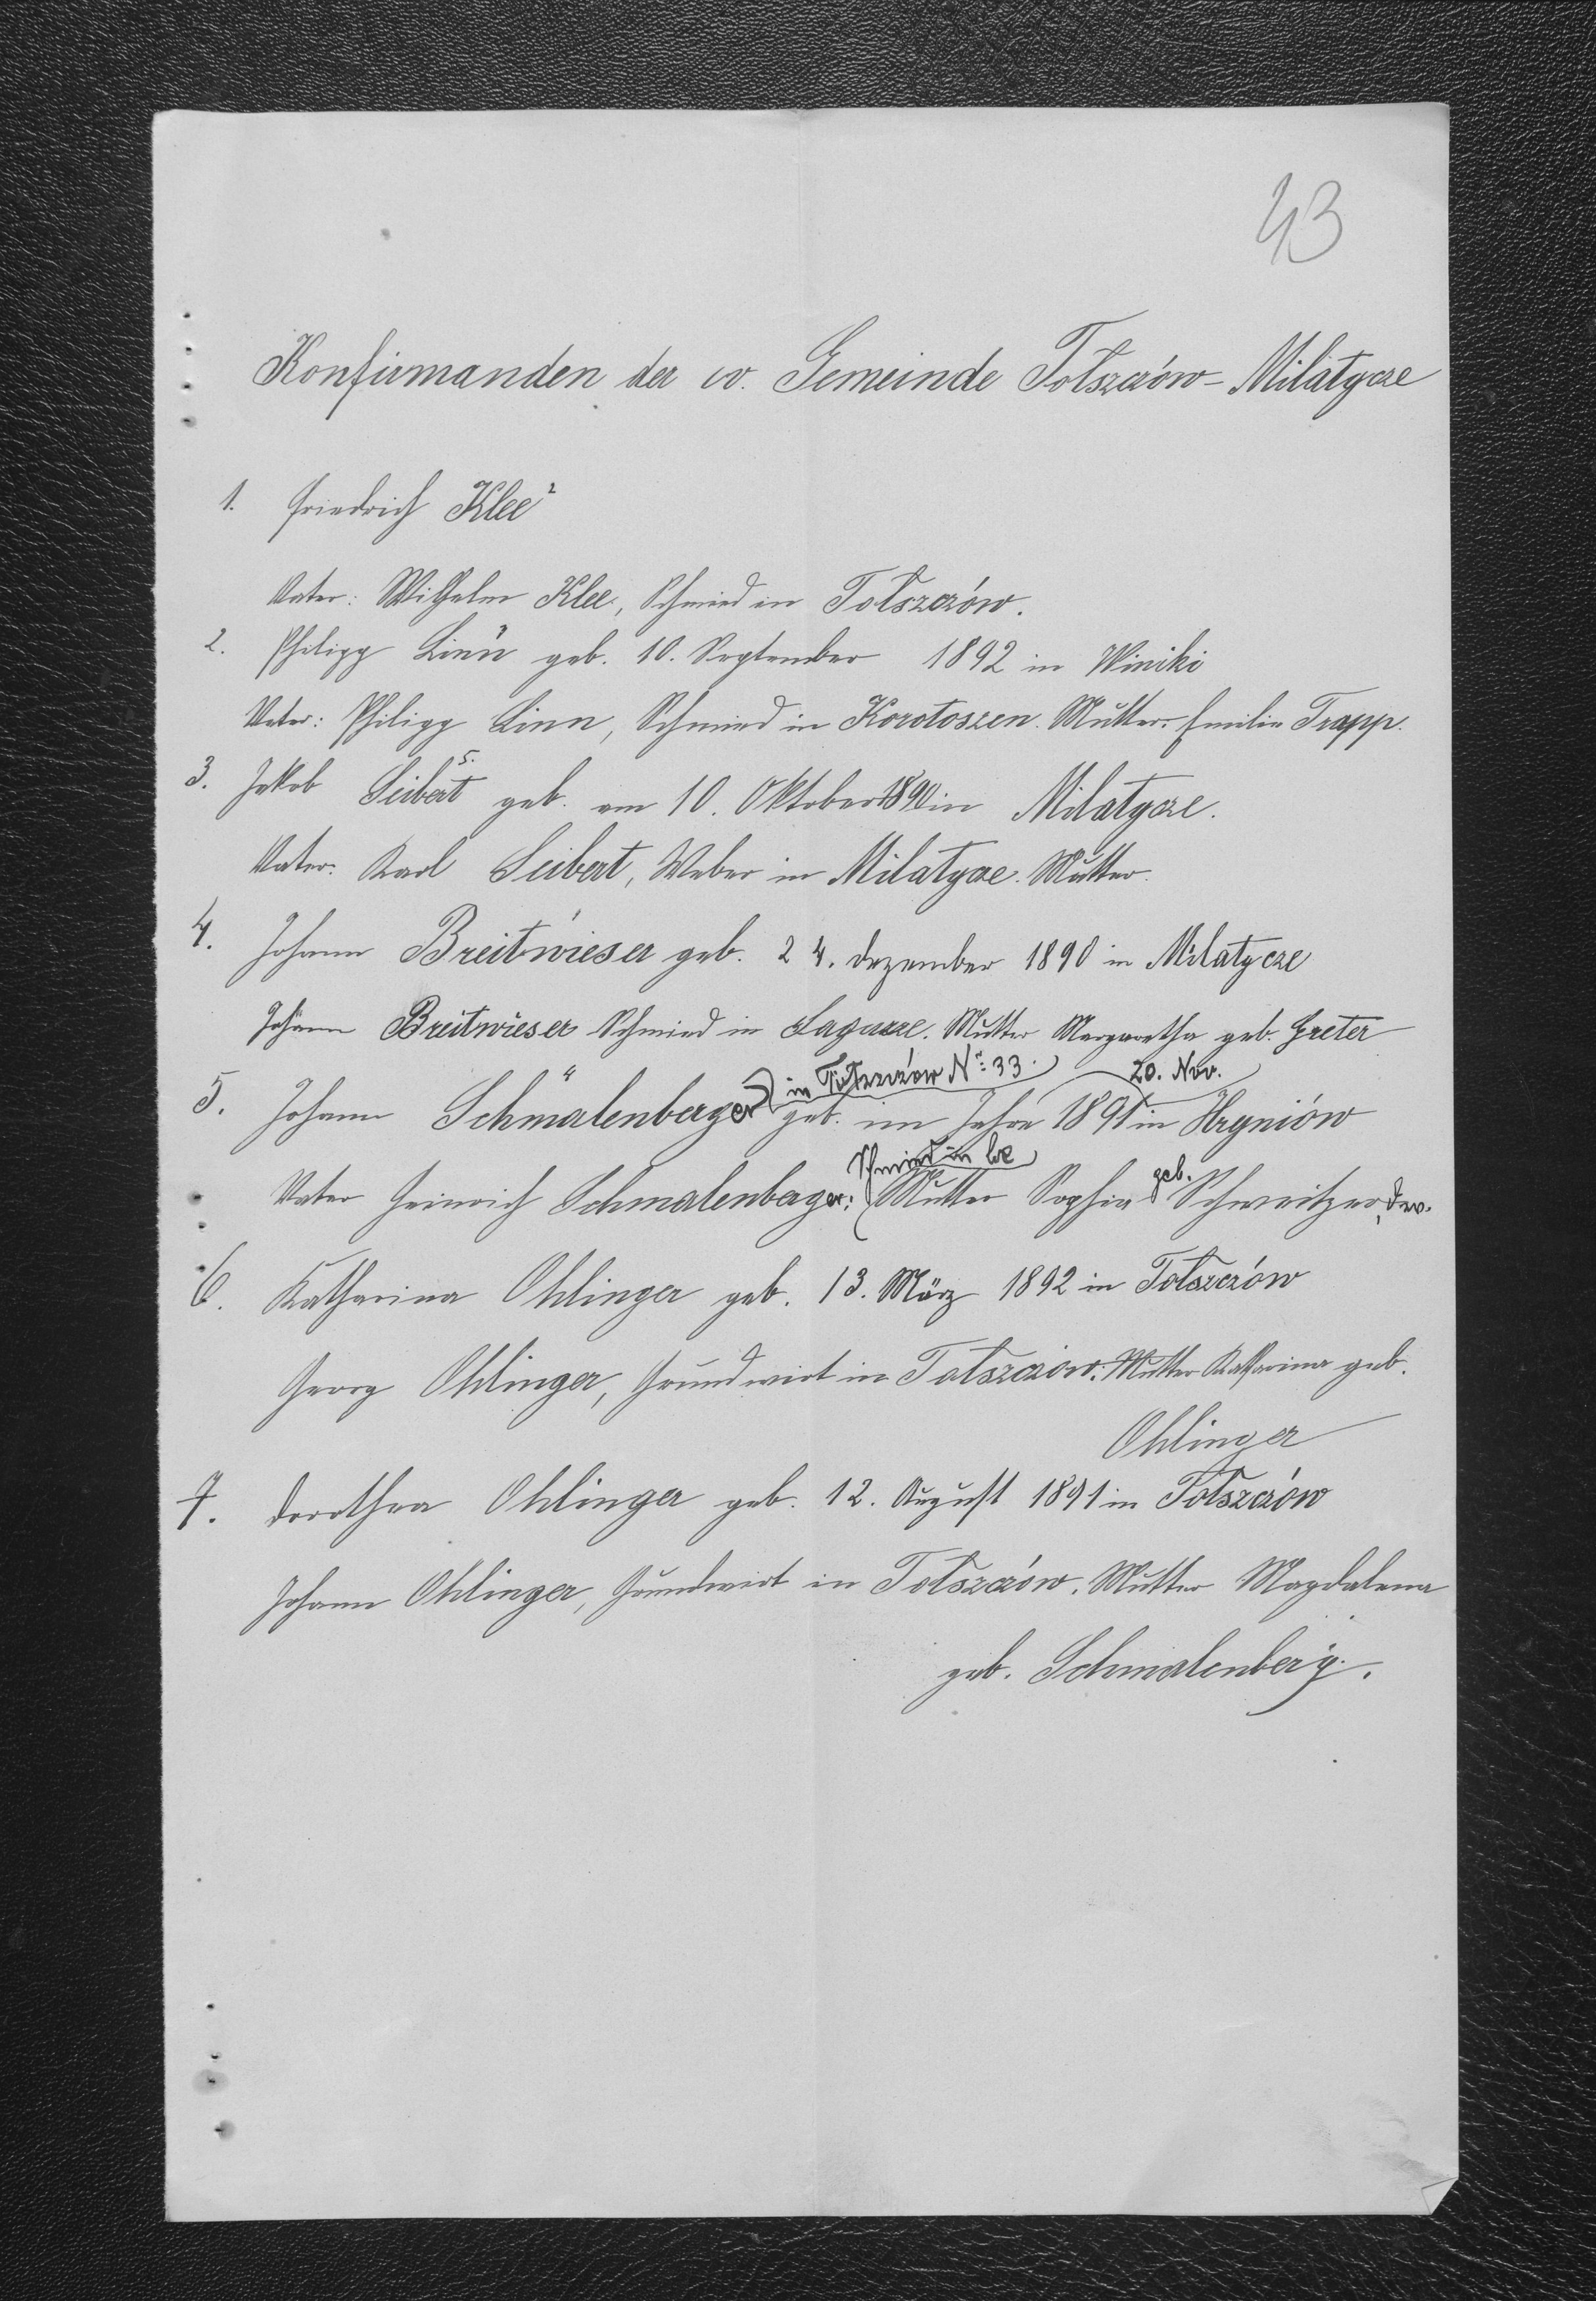 43
Konfirmanden der ev. Gemeinde Tołszczów-Milatycze
1. Friedrich Klee 2
Vater: Wilhelm Klee, Schmied in Tołszczów.
2. Philipp Linn geb. 10. September 1892 in Winiki
Vater: Philipp Linn, Schmied in Korotoszen. Mutter: Emilie Trapp.
3. Jakob Seibert 5. geb. am 10. Oktober 1890 in Milatycze.
Vater: Karl Seibert, Weber in Milatycze. Mutter.
4. Johann Breitwieser geb. 24. Dezember 1890 in Milatycze
Johann Breitwieser Schmied in Mutter Margaretha geb. Greter
in Tołszczów No: 33. 20. Nov.
5. Johann Schmalenberger geb. im Jahre 1891 in Hryniów
Schmied in
Vater Heinrich Schmalenberger: Mutter Sophia geb. Schweitzer,
6. Katharina Ohlinger geb. 13. März 1892 in Tołszczów
Georg Ohlinger, Grundwirt in Tołszczów. Mutter Katharina geb.
Ohlinger
7. Dorothea Ohlinger geb. 12. August 1891 in Tołszczów
Johann Ohlinger, Grundwirt in Tołszczów. Mutter Magdalena
geb. Schmalenberg.